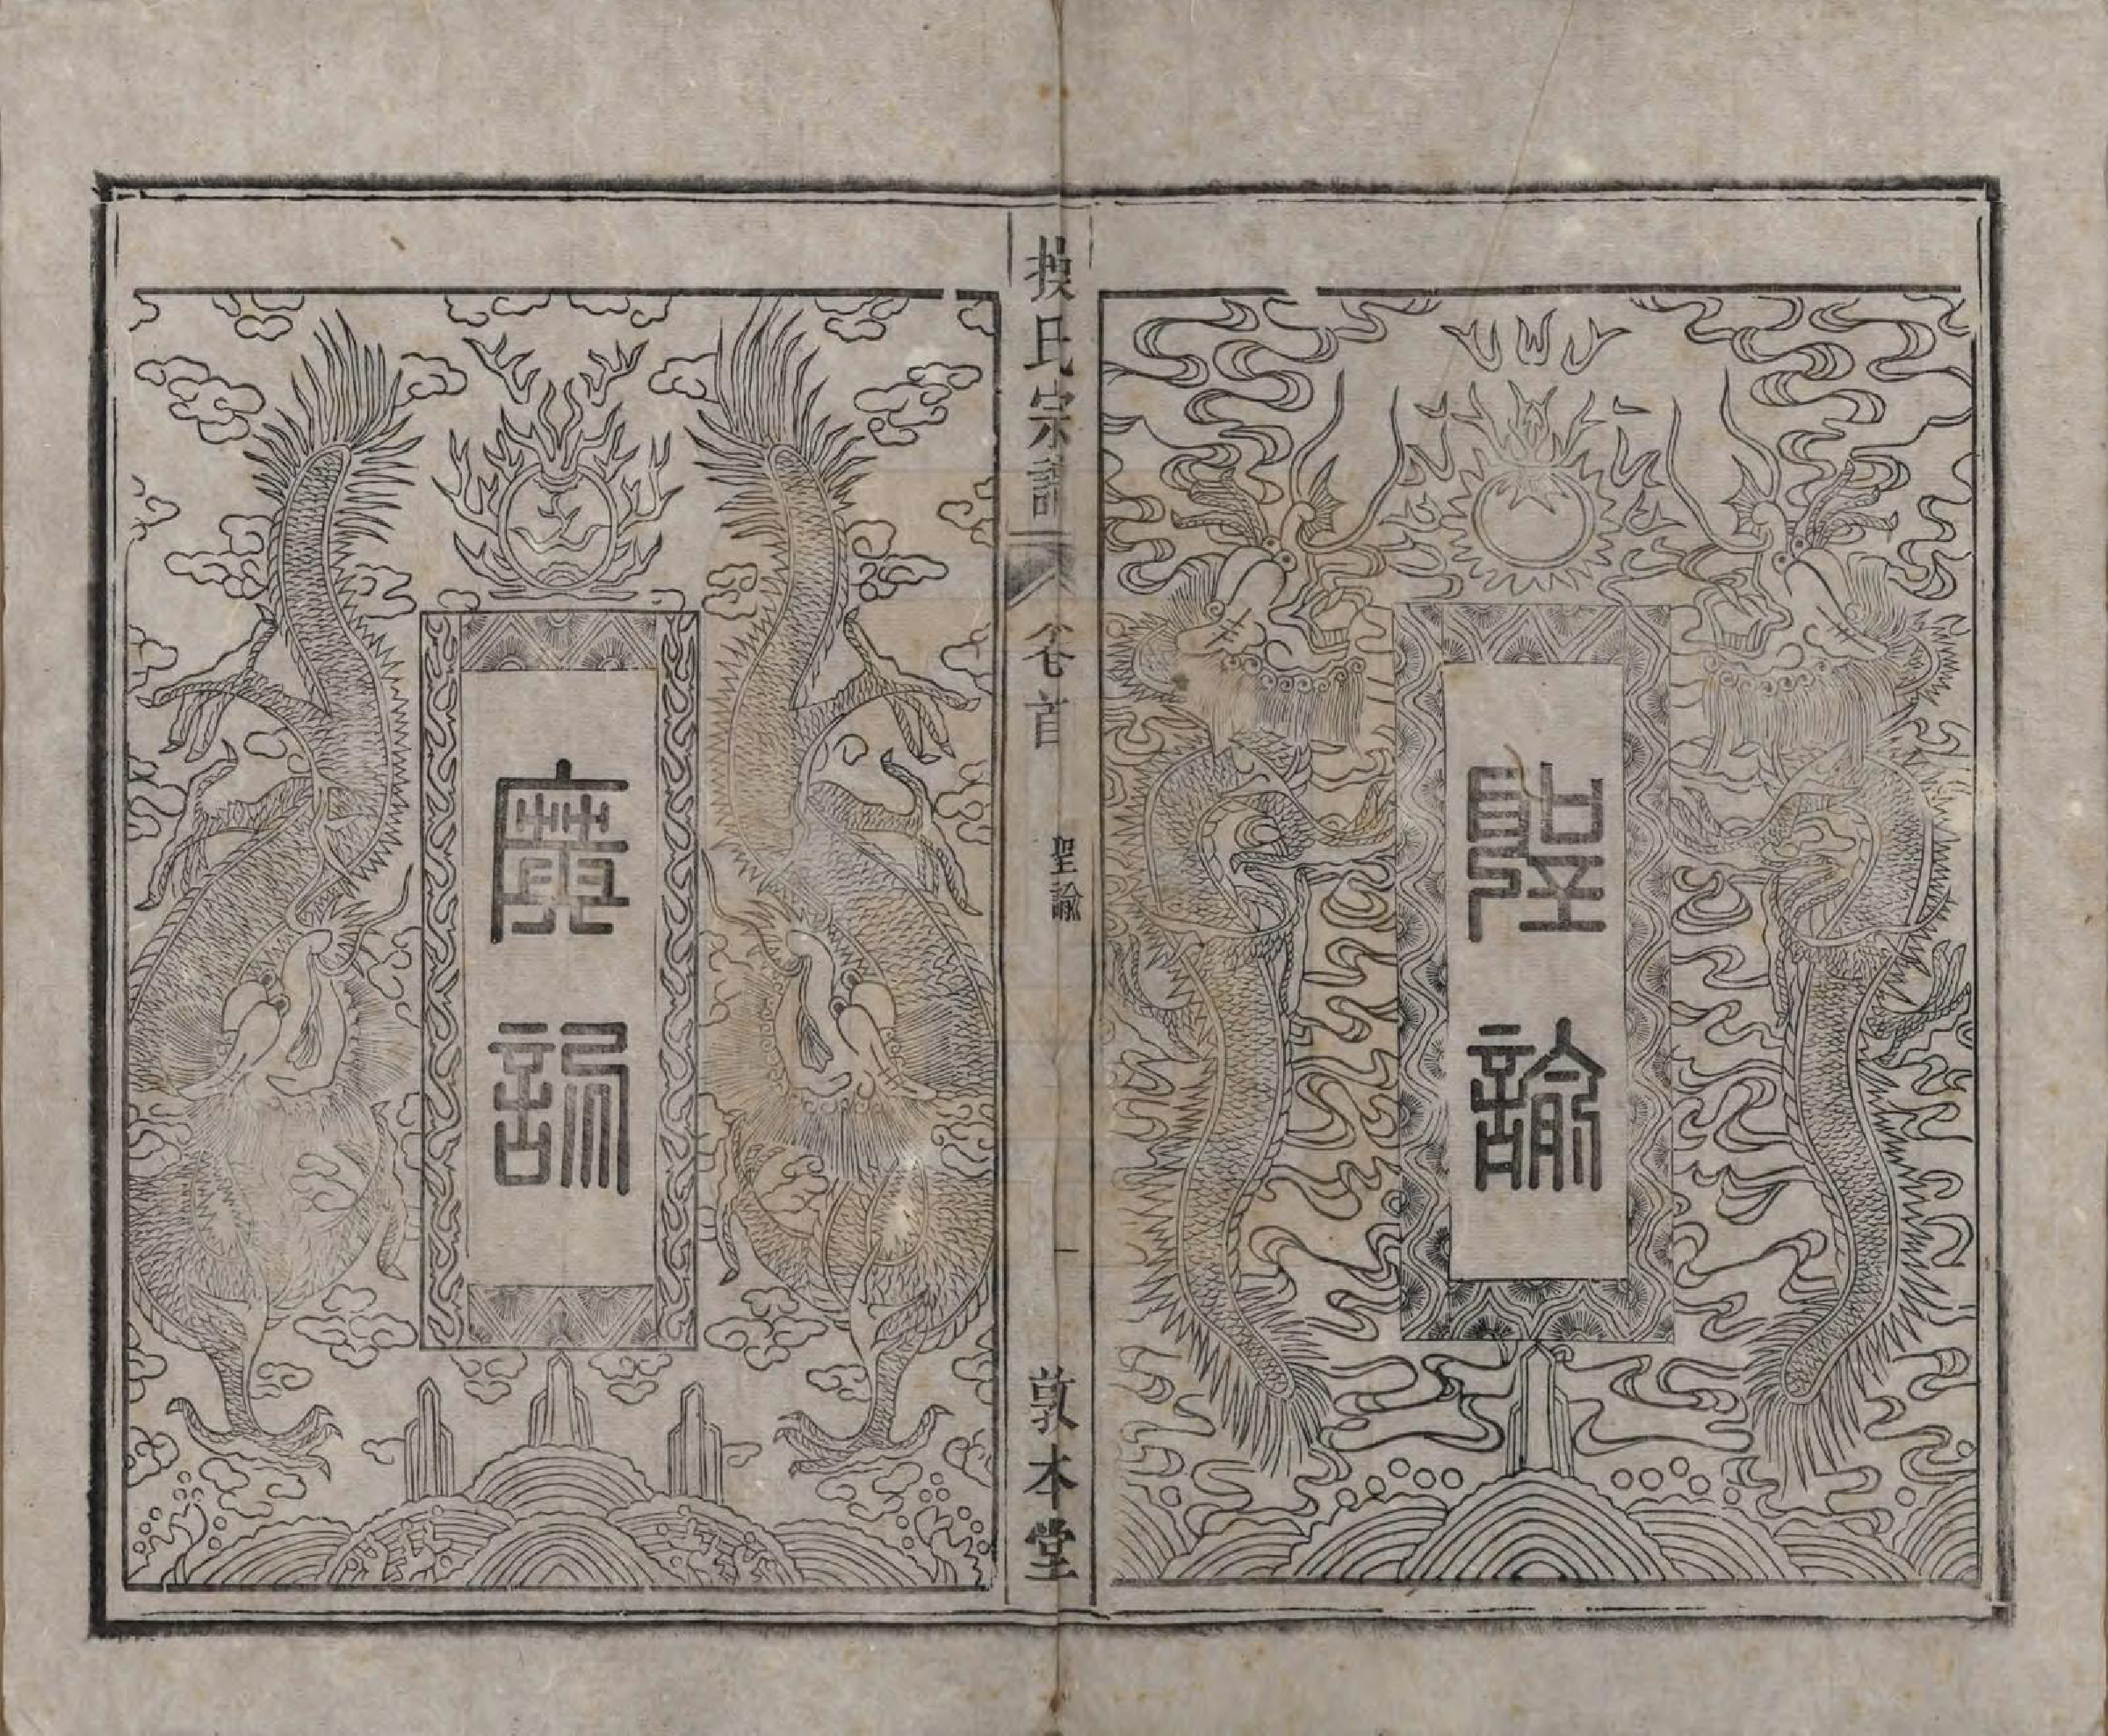 聖諭
操氏宗譜
卷首
聖諭
一
敦本堂
廣訓